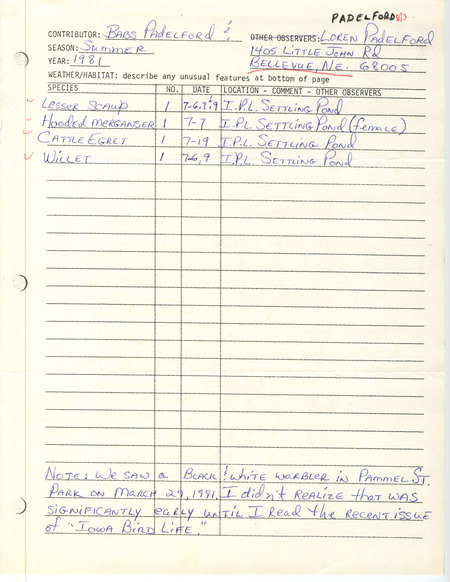 PADELFORD
CONTRIBUTOR: BABS PADELFORD & OTHER OBSERVERS: LOREN PADELFORD
SEASON: SUMMER 1405 LITTLE JOHN RD
YEAR: 1981 BELLEVUE, NE. 68005
WEATHER/HABITAT: describe any unusual features at bottom of page
SPECIES NO. DATE LOCATION - COMMENT - OTHER OBSERVERS
LESSER SCAUP 1 7-6,7&9 I.P.L. SETTLING POND
HOODED MERGANSER 1 7-7 I.P.L. SETTLING POND (female)
CATTLE EGRET 1 7-19 I.P.L. SETTLING POND
WILLET 1 7-6,9 I.P.L. SETTLING POND
NOTE: WE SAW A BLACK & WHITE WARBLER IN PAMMEL ST.
PARK ON MARCH 29, 1981. I didn't REALIZE that WAS
SIGNIFICANTLY EARLY UNTIL I READ the RECENT ISSUE
of "IOWA BIRD LIFE."